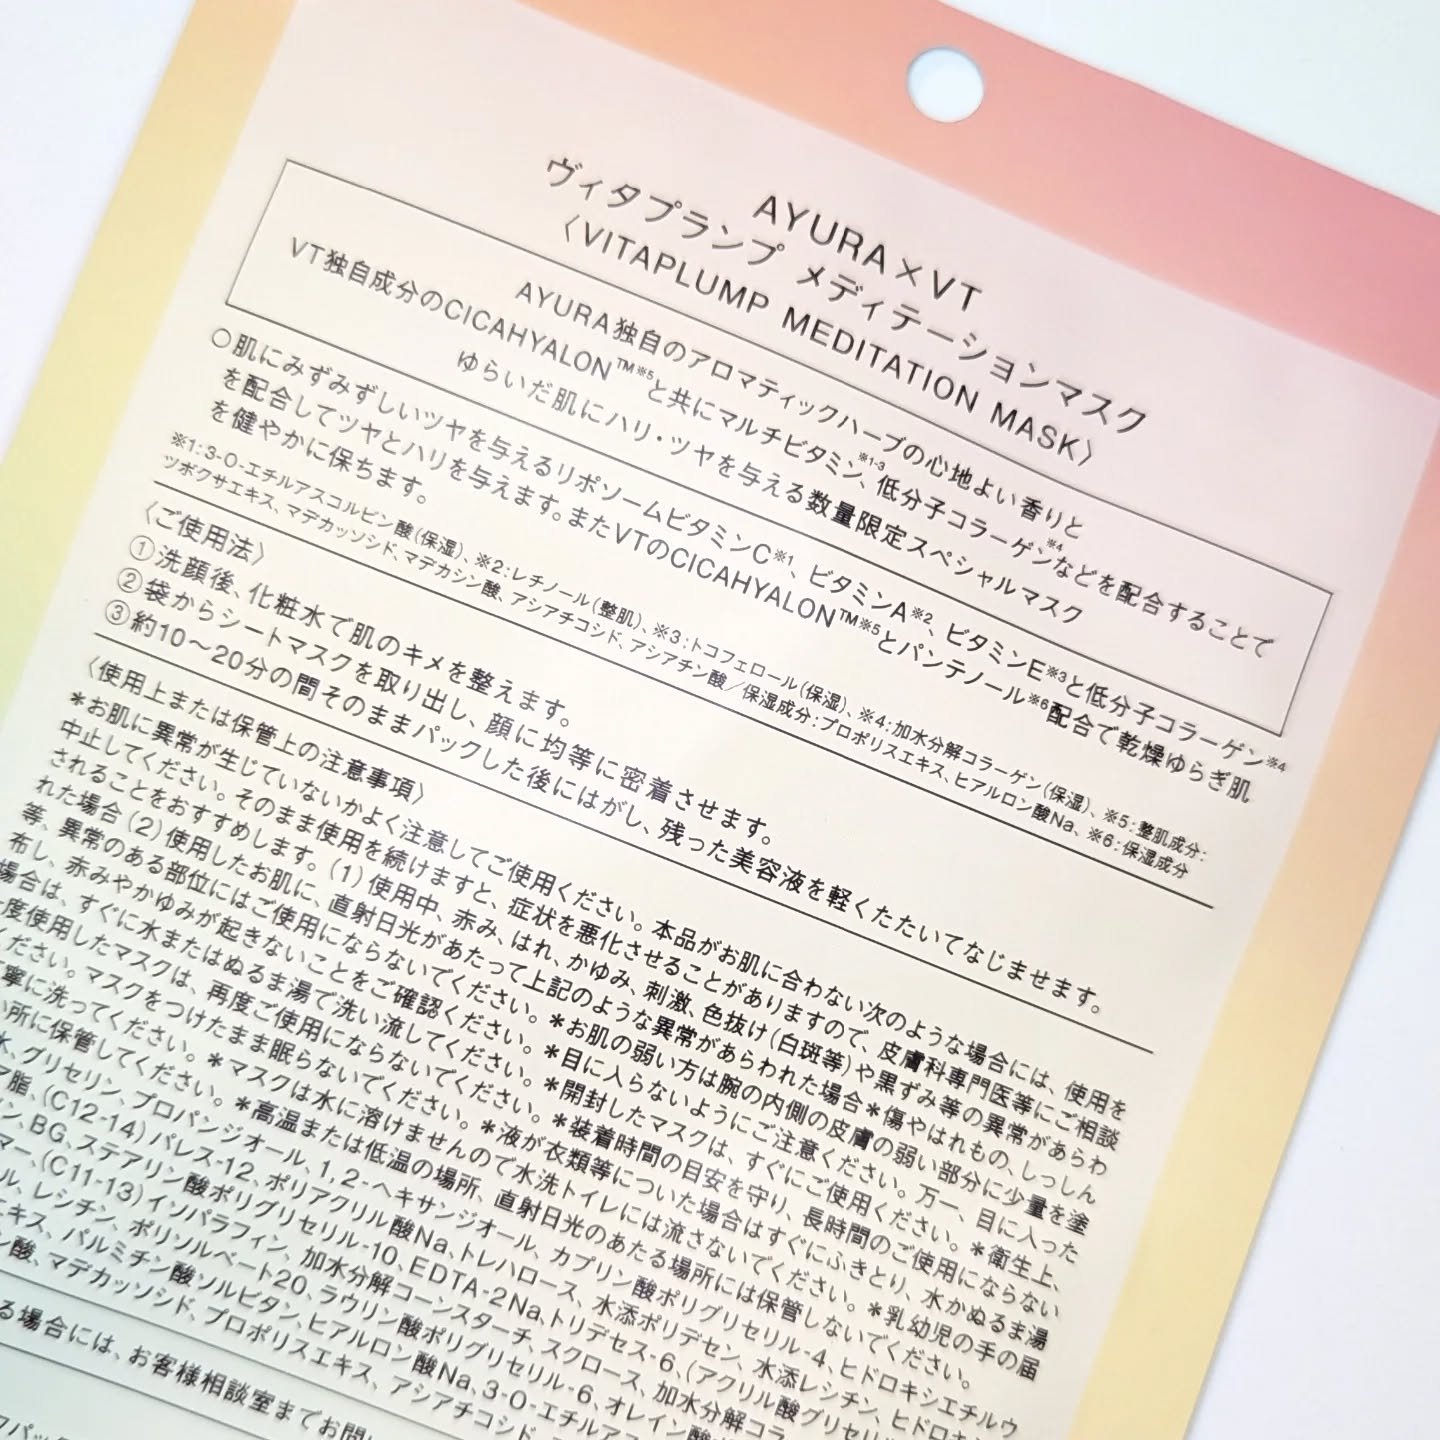 AYURA×VT
ヴィタプランプ メディテーションマスク
〈VITAPLUMP MEDITATION MASK〉
AYURA独自のアロマティックハーブの心地よい香りと
VT独自成分のCICAHYALON™※5と共にマルチビタミン※1-3、低分子コラーゲン※4などを配合することで
ゆらいだ肌にハリ・ツヤを与える数量限定スペシャルマスク
○肌にみずみずしいツヤを与えるリポソームビタミンC※1、ビタミンA※2、ビタミンE※3と低分子コラーゲン※4
を配合してツヤとハリを与えます。またVTのCICAHYALON™※5とパンテノール※6配合で乾燥ゆらぎ肌
を健やかに保ちます。
※1:3-O-エチルアスコルビン酸(保湿)、※2:レチノール(整肌)、※3:トコフェロール(保湿)、※4:加水分解コラーゲン(保湿)、※5:整肌成分:
ツボクサエキス、マデカッソシド、マデカシン酸、アシアチコシド、アシアチン酸／保湿成分:プロポリスエキス、ヒアルロン酸Na、※6:保湿成分
〈ご使用法〉
①洗顔後、化粧水で肌のキメを整えます。
②袋からシートマスクを取り出し、顔に均等に密着させます。
③約10〜20分の間そのままパックした後にはがし、残った美容液を軽くたたいてなじませます。
〈使用上または保管上の注意事項〉
＊お肌に異常が生じていないかよく注意してご使用ください。本品がお肌に合わない次のような場合には、使用を
中止してください。そのまま使用を続けますと、症状を悪化させることがありますので、皮膚科専門医等にご相談
されることをおすすめします。(1)使用中、赤み、はれ、かゆみ、刺激、色抜け(白斑等)や黒ずみ等の異常があらわ
れた場合(2)使用したお肌に、直射日光があたって上記のような異常があらわれた場合＊傷やはれもの、しっしん
等、異常のある部位にはご使用にならないでください。＊お肌の弱い方は腕の内側の皮膚の弱い部分に少量を塗
布し、赤みやかゆみが起きないことをご確認ください。＊目に入らないようにご注意ください。万一、目に入った
場合は、すぐに水またはぬるま湯で洗い流してください。＊開封したマスクは、すぐにご使用ください。＊衛生上、
度使用したマスクは、再度ご使用にならないでください。＊装着時間の目安を守り、長時間のご使用にならない
ください。マスクをつけたまま眠らないでください。＊液が衣類等についた場合はすぐにふきとり、水かぬるま湯
寧に洗ってください。＊マスクは水に溶けませんので水洗トイレには流さないでください。＊乳幼児の手の届
所に保管してください。＊高温または低温の場所、直射日光のあたる場所には保管しないでください。
水、グリセリン、プロパンジオール、1,2-ヘキサンジオール、カプリン酸ポリグリセリル-4、ヒドロキシエチルウ
ア脂、(C12-14)パレス-12、ポリアクリル酸Na、トレハロース、水添ポリデセン、水添レシチン、ヒドロキ
ン、BG、ステアリン酸ポリグリセリル-10、EDTA-2Na、トリデセス-6、(アクリル酸グリセリ
マー、(C11-13)イソパラフィン、加水分解コーンスターチ、スクロース、加水分解コラ
ル、レシチン、ポリソルベート20、ラウリン酸ポリグリセリル-6、オレイン酸
エキス、パルミチン酸ソルビタン、ヒアルロン酸Na、3-O-エチルア
ン酸、マデカッソシド、プロポリスエキス、アシアチコシド、
る場合には、お客様相談室までお問い